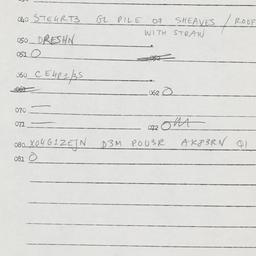 040 STEGRT3 GL PILE OF SHEAVES / ROOF
WITH STRAW
050 DRESHN
051 O
060 C E4P2/3S
062 O
070 —
071 —
072 O
080 X04G1ZEJN D3M POU3R AK83RN Q1
081 O